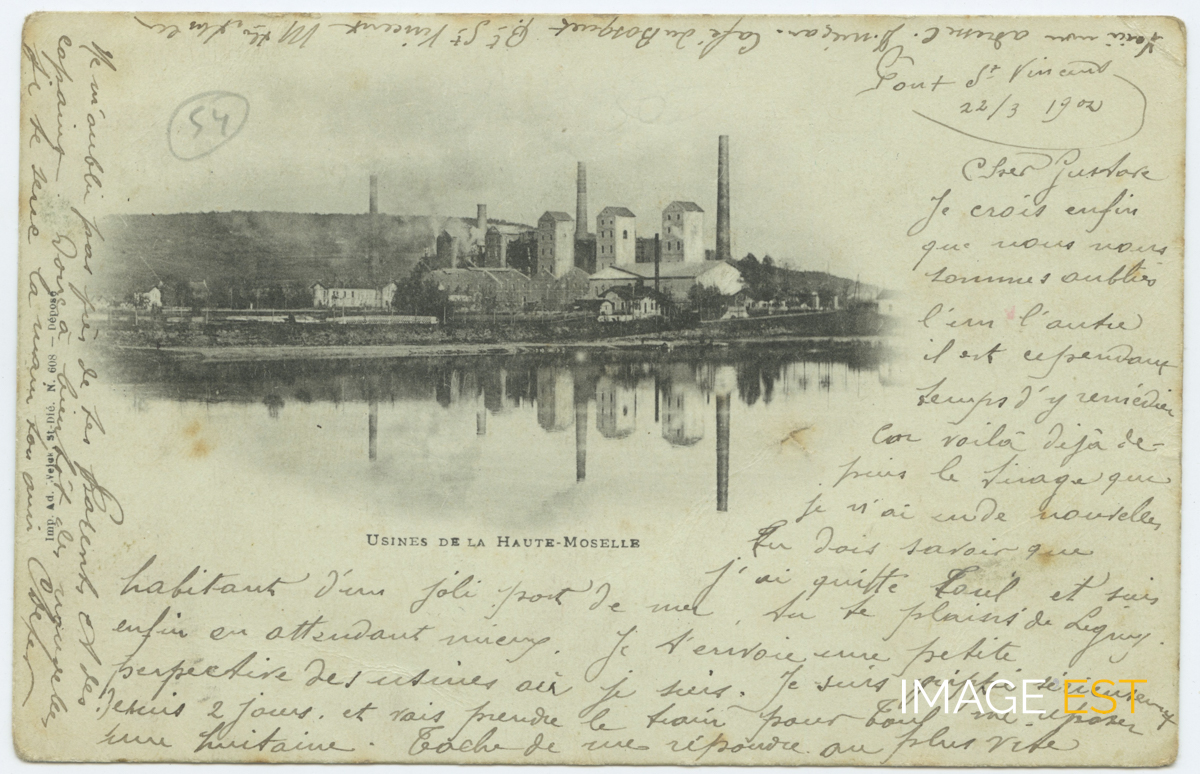 Pont St Vincent
22/3 1902
Cher Gustave
Je crois enfin
que nous nous
sommes oubliés
l'un l'autre
il est cependant
temps d'y remédier
car voilà déjà de-
puis le tirage que
je n'ai eu de nouvelles
Tu dois savoir que
j'ai quitté Toul et suis
habitant d'un joli port de mer. tu te plaisis de Ligny.
enfin en attendant mieux. Je t'envoie une petite
perspective des usines où je suis. Je suis sérieusement
depuis 2 jours. et vais prendre le train pour Toul me reposer
une huitaine. Tache de me répondre au plus vite
Ne m'oublie pas près de tes Parents et des
copains. Donc à bientôt des nouvelles
Je te serre la main ton ami
Voici mon adresse. Café du Bosquet Pt St Vincent Mthe Mselle
54
USINES DE LA HAUTE-MOSELLE
Imp. Ad. Weick St-Dié. N. 608 — Déposé
IMAGE EST